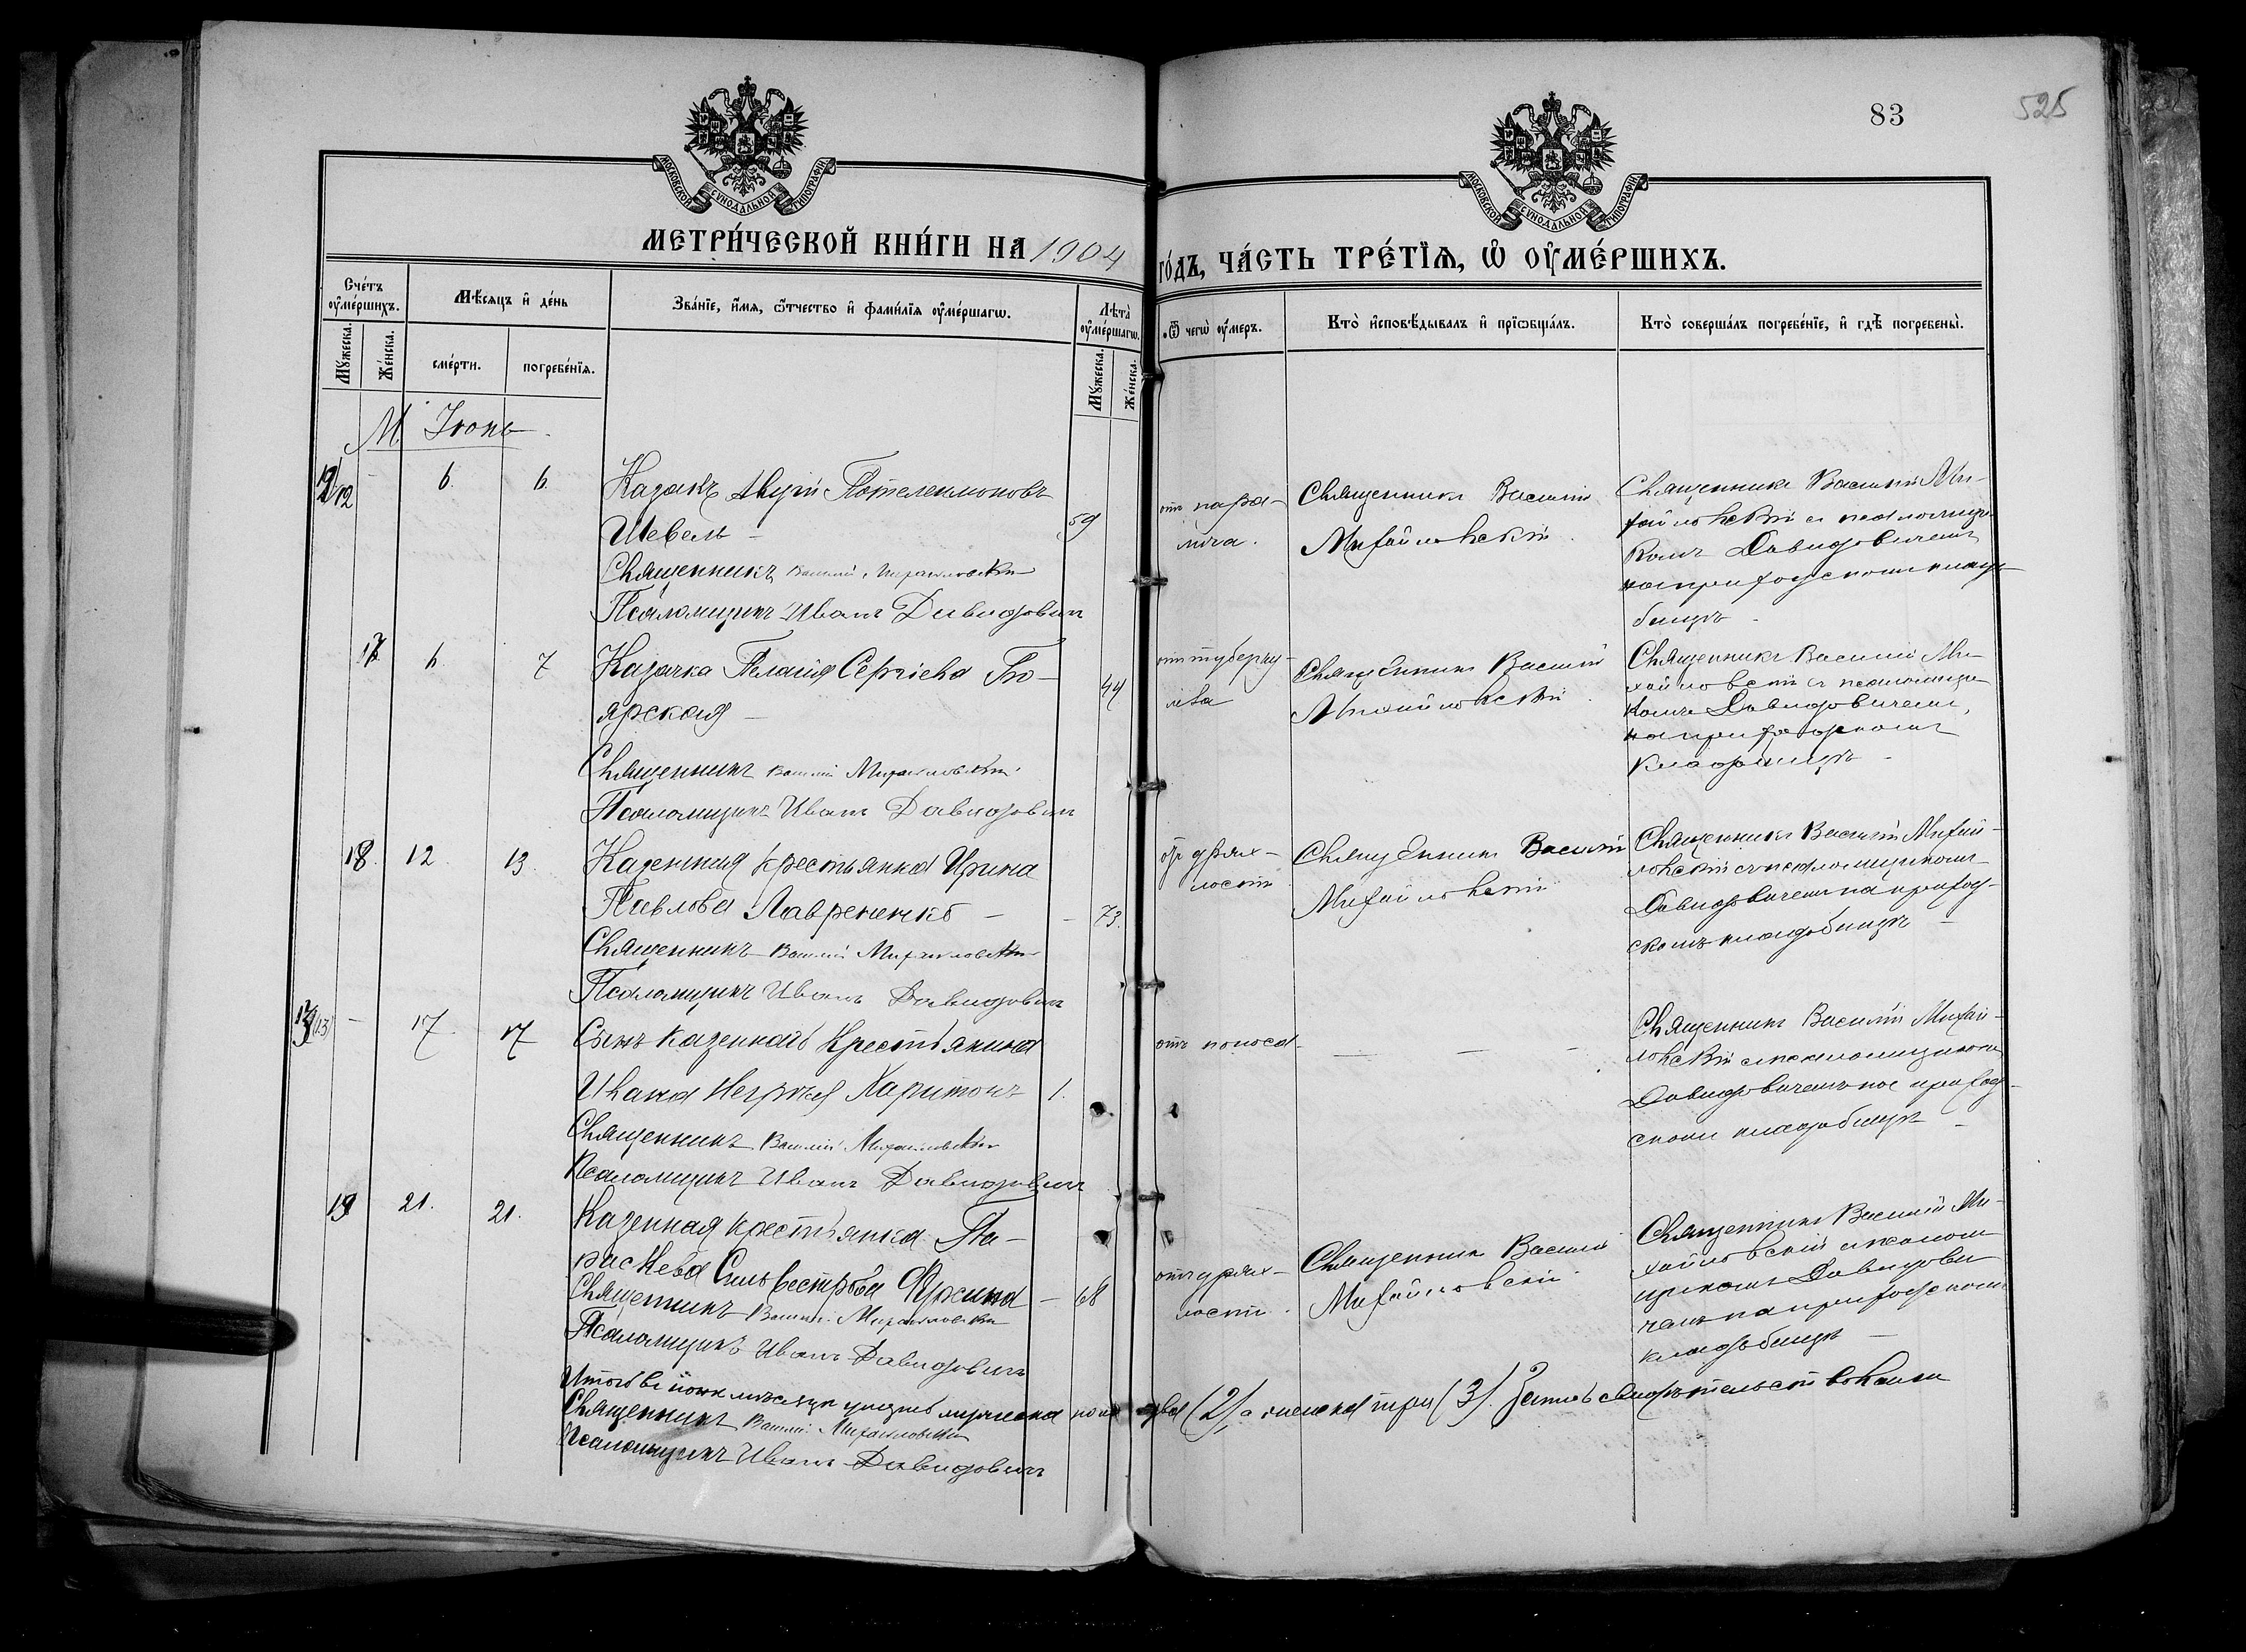 83
525
МОСКОВСКОЙ СѴНОДАЛЬНОЙ ТИПОГРАФІИ
МОСКОВСКОЙ СѴНОДАЛЬНОЙ ТИПОГРАФІИ
МЕТРИ́ЧЕСКОЙ КНИ́ГИ НА 1904
ГО́ДЪ, ЧА́СТЬ ТРЕ́ТЇѦ, Ѡ҆ ОУ҆МЕ́РШИХЪ.
Сче́тъ оу҆ме́ршихъ.
Мꙋ́жеска.
Же́нска.
Мѣ́сяцъ и҆ де́нь
сме́рти.
погребе́нїѧ.
Зва́нїе, и҆́мѧ, ѻ҆́тчество и҆ фами́лїѧ оу҆ме́ршагѡ.
Лѣта̀ оу҆ме́ршагѡ.
Мꙋ́жеска.
Же́нска.
Ѿ чегѡ̀ оу҆́меръ.
Кто̀ и҆сповѣ́дывалъ и҆ прїѡбща́лъ.
Кто̀ соверша́лъ погребе́нїе, и҆ гдѣ̀ погребены̀.
М. Іюнь
12 - 6. 6.
Казакъ Авуій Пателеимоновъ
Шевель - 59
Священникъ Василій Михайловскій
Псаломщикъ Иванъ Давидовичъ
отъ пара-
лича.
Священникъ Василій
Михайловскій.
Священникъ Василій Ми-
хайловскій съ псаломщи-
комъ Давидовичемъ
на приходскомъ клад-
бищѣ.
17 6. 7
Казачка Пелагія Сергіева Бо-
ярская - 44
Священникъ Василій Михайловскій
Псаломщикъ Иванъ Давидовичъ
отъ туберку-
леза
Священникъ Василій
Михайловскій.
Священникъ Василій Ми-
хайловскій съ псаломщи-
комъ Давидовичемъ,
на приходскомъ
кладбищѣ -
18. 12. 13.
Казенная крестьянка Ирина
Павлова Лавриненко - - 73.
Священникъ Василій Михайловскій
Псаломщикъ Иванъ Давидовичъ
отъ дрях-
лости
Священникъ Василій
Михайловскій
Священникъ Василій Михай-
ловскій съ псаломщикомъ
Давидовичемъ на приход-
скомъ кладбищѣ -
13 (13) - 17. 17
Сынъ казеннаго крестьянина
Ивана Негрія Харитонъ 1.
Священникъ Василій Михайловскій
Псаломщикъ Иванъ Давидовичъ
отъ поноса - - - -
Священникъ Василій Михай-
ловскій съ псаломщикомъ
Давидовичемъ на приход-
скомъ кладбищѣ -
19 21. 21.
Казенная крестьянка Па-
раскева Сильвестрова - 68
Священникъ Василій Михайловскій
Псаломщикъ Иванъ Давидовичъ
отъ дрях-
лости.
Священникъ Василій
Михайловскій
Священникъ Василій Ми-
хайловскій съ псаломщикомъ Давидови-
чемъ на приходскомъ
кладбищѣ -
Итого въ іюнѣ мѣсяцѣ умерло мужеска пола два (2), а женска три (3). Въ чемъ и свидѣтельствовали
Священникъ Василій Михайловскій
Псаломщикъ Иванъ Давидовичъ